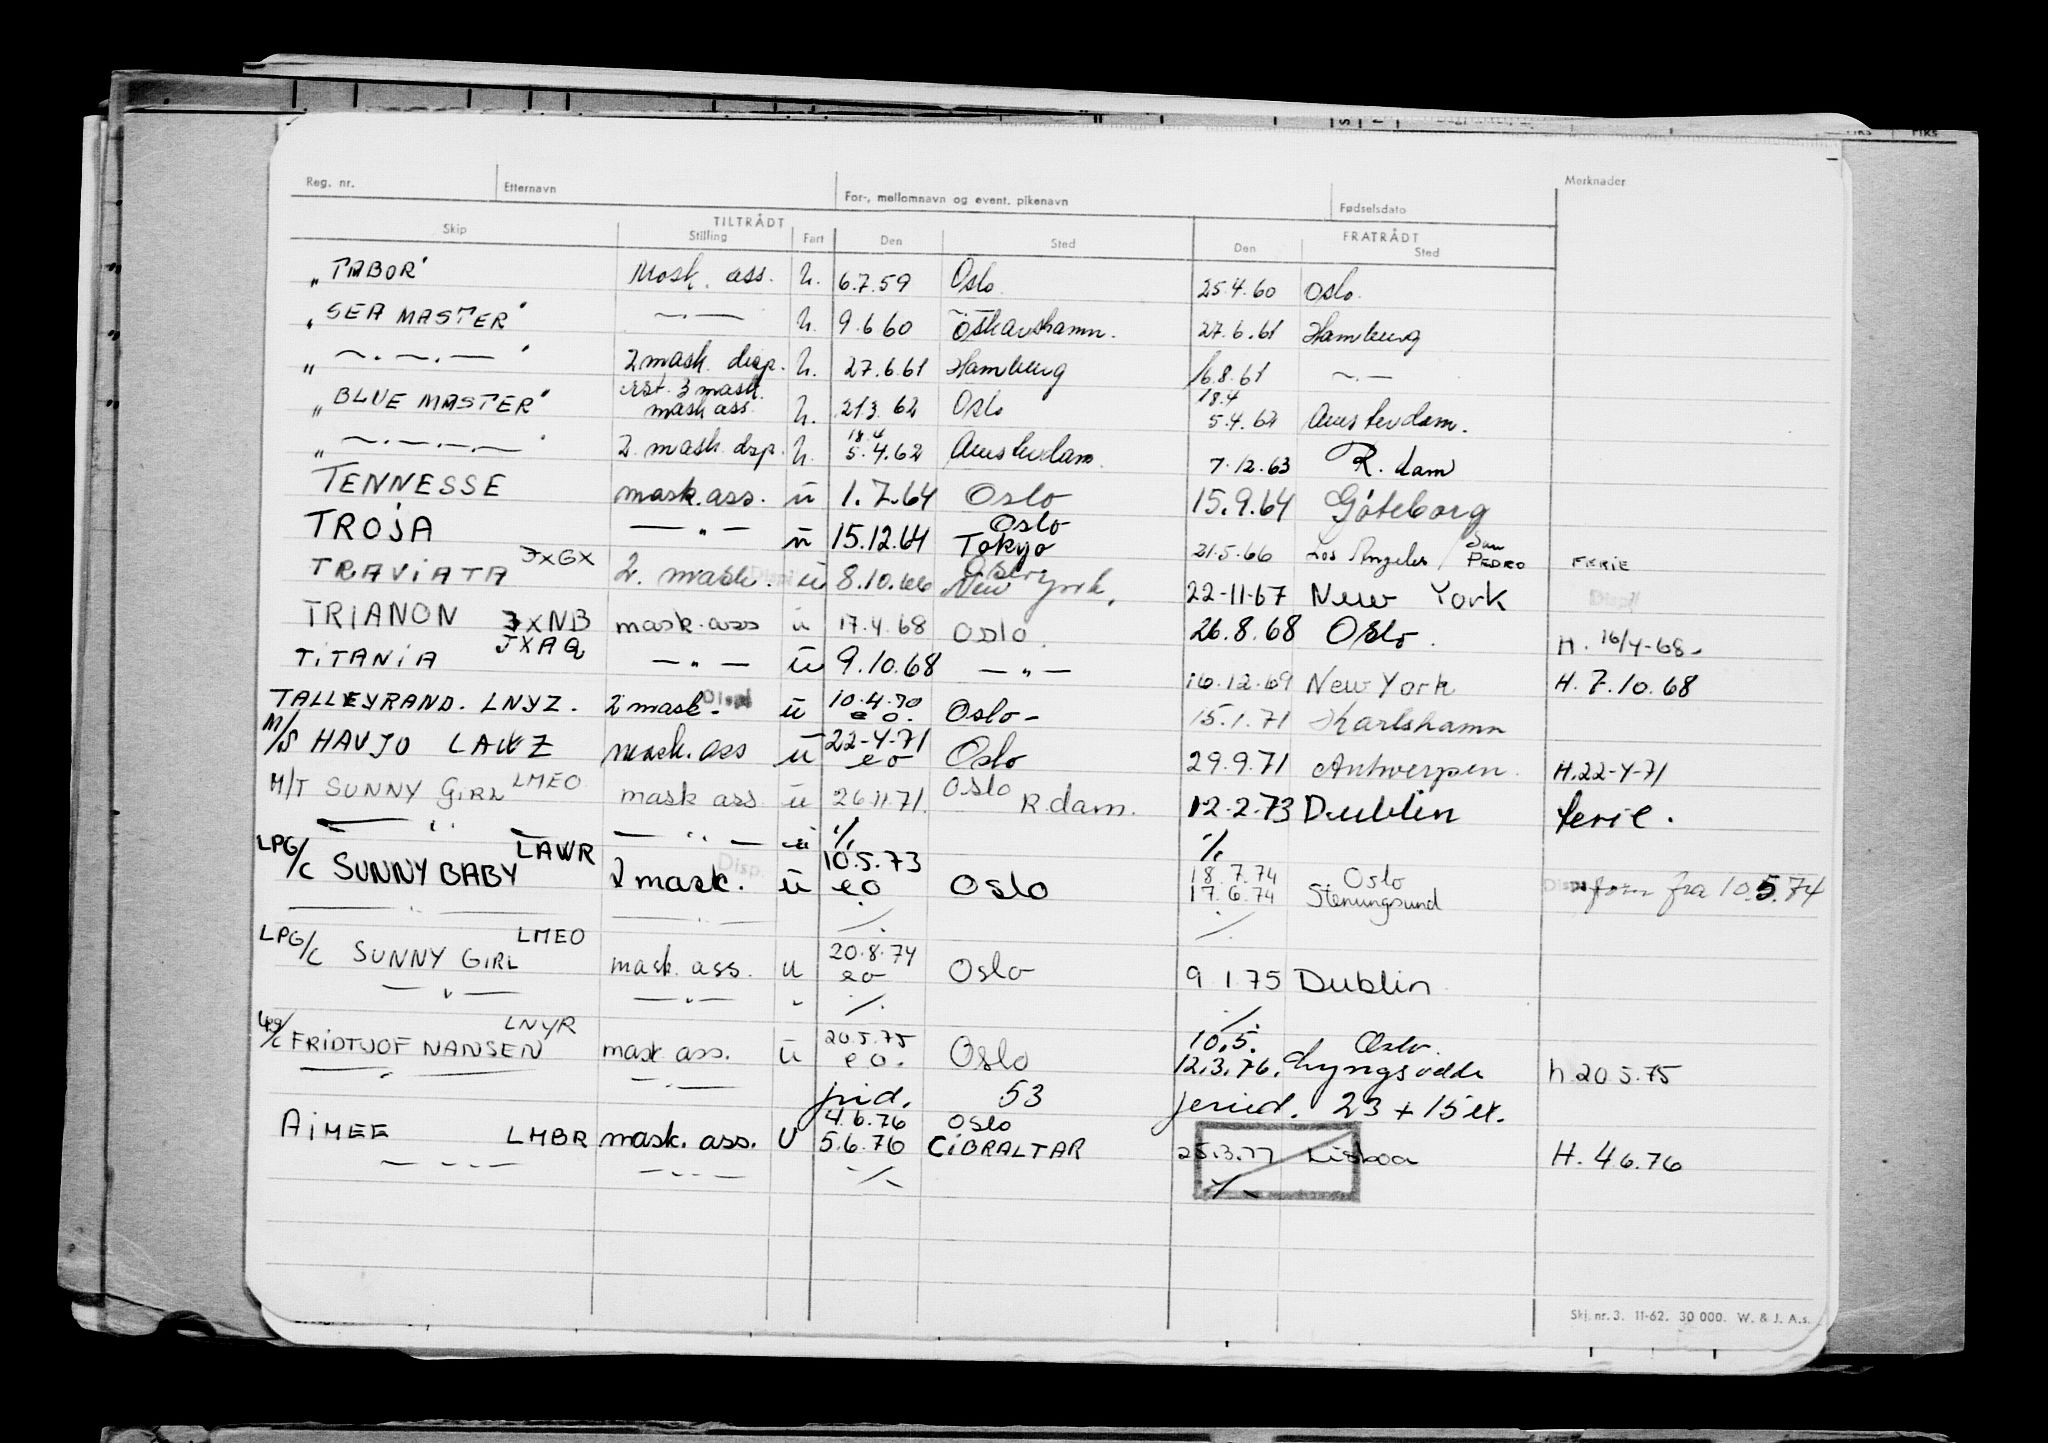 Reg. nr. Etternavn For-, mellomnavn og event. pikenavn Fødselsdato Merknader
TILTRÅDT FRATRÅDT
Skip Stilling Fart Den Sted Den Sted
„TABOR" Mask. ass. h. 6.7.59 Oslo 25.4.60 Oslo.
„SEA MASTER" —.— h. 9.6 60 Oskarshamn. 27.6.61 Hamburg
„ —.—.— " 2 mask. disp. h. 27.6.61 Hamburg 16.8.61 —.—
„BLUE MASTER" mask ass. h. 21.3.62 Oslo 18.4 5.4.62 Amsterdam.
„ —.—.—.— " 2. mask. dsp. h. 18.4 5.4.62 Amsterdam. 7.12.63 R.dam
TENNESSE mask.ass. u 1.7.64 Oslo 15.9.64 Göteborg
TROJA — " — u 15.12.64 Oslo Tokyo 21.5.66 Los Angeles / San PEDRO FERIE
TRAVIATA JXGX 2. mask. Disp u 8.10.66 Oslo New York. 22-11-67 New York Disp
TRIANON JXNB mask.ass u 17.4.68 Oslo. 26.8.68 Oslo. H. 16/4-68-
TITANIA JXAQ — " — u 9.10.68 — " — 16.12.69 New York H. 7.10.68
TALLEYRAND. LNYZ. 2 mask. Disp u 10.4.70 e o. Oslo- 15.1.71 Karlshamn
M/S HAVJO mask.ass u 22-4-71 e o Oslo 29.9.71 Antwerpen. H.22-4-71
M/T SUNNY GIRL LMEO mask ass u 26.11.71. Oslo R.dam. 12.2.73 Dublin ferie.
— " — — " — u ·/. ·/.
LPG/C SUNNY BABY LAWR 2 mask. Disp. u 10.5.73 e o Oslo 18.7.74 Oslo 17.6.74 Stenungsund Disp fom fra 10.5.74
— " — — " — ·/. ·/.
LPG/C SUNNY GIRL LMEO mask. ass. u 20.8.74 e o Oslo 9 1.75 Dublin
— " — — " — " ·/. ·/.
LPG/C FRIDTJOF NANSEN LNYR mask ass. u 20.5.75 e o. Oslo 10.5. Oslo. 12.3.76. Lyngsodde h.20 5.75
— " — — " — 53 23 + 15
AIMEE LMBR mask. ass. U 4.6.76 Oslo 5.6.76 GIBRALTAR 25.3.77 Lisboa H. 4 6.76
— " — — " — ·/. ·/.
Skj. nr. 3. 11-62. 30 000. W. & J. A.s.